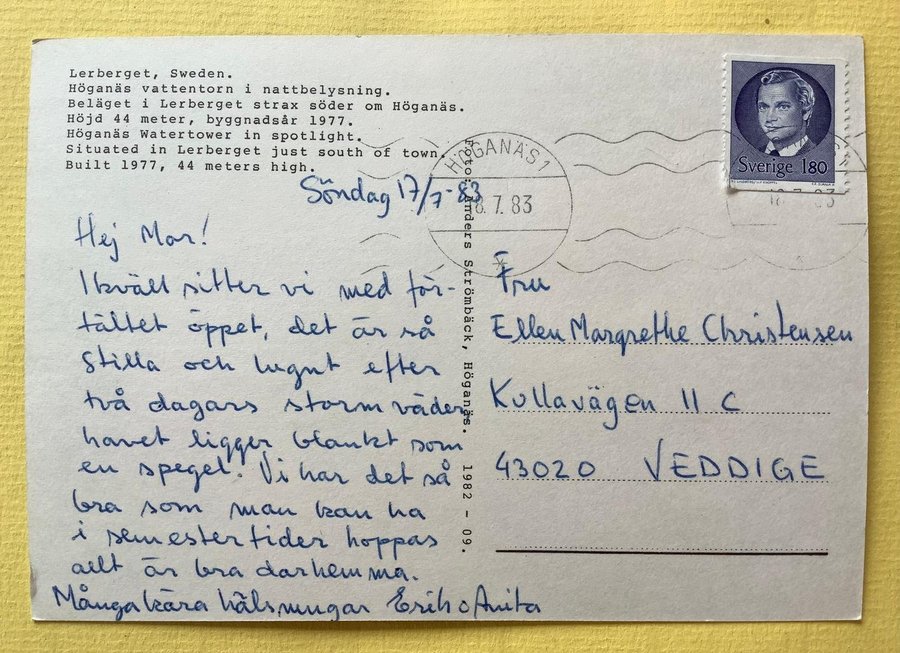 Lerberget, Sweden.
Höganäs vattentorn i nattbelysning.
Beläget i Lerberget strax söder om Höganäs.
Höjd 44 meter, byggnadsår 1977.
Höganäs Watertower in spotlight.
Situated in Lerberget just south of town.
Built 1977, 44 meters high.
Söndag 17/7-83
Hej Mor!
Ikväll sitter vi med för-
tältet öppet, det är så
stilla och lugnt efter
två dagars storm väder
havet ligger blankt som
en spegel. Vi har det så
bra som man kan ha
i semestertider hoppas
allt är bra darhemma.
Många kära hälsningar Erik o Anita
Foto: Anders Strömbäck, Höganäs. 1982 - 09.
HÖGANÄS 1
18.7.83
Sverige 180
18.7.83
Fru
Ellen Margrethe Christensen
Kullavägen 11 C
43020 VEDDIGE